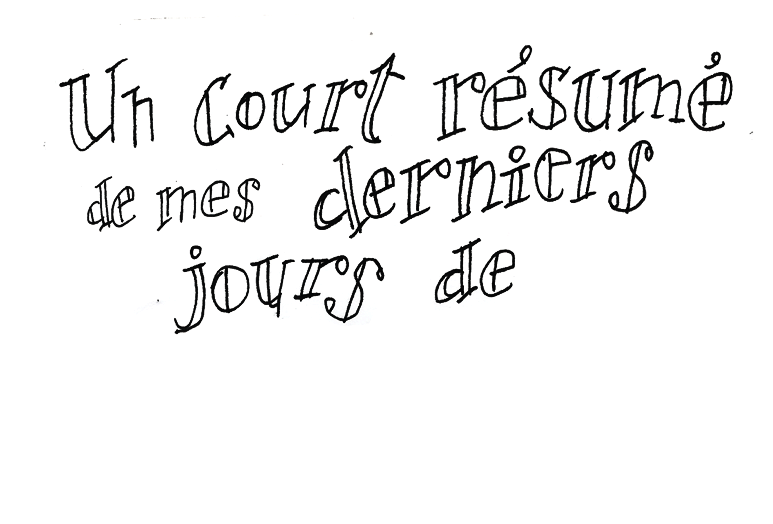 Un court résumé
de mes derniers
jours de